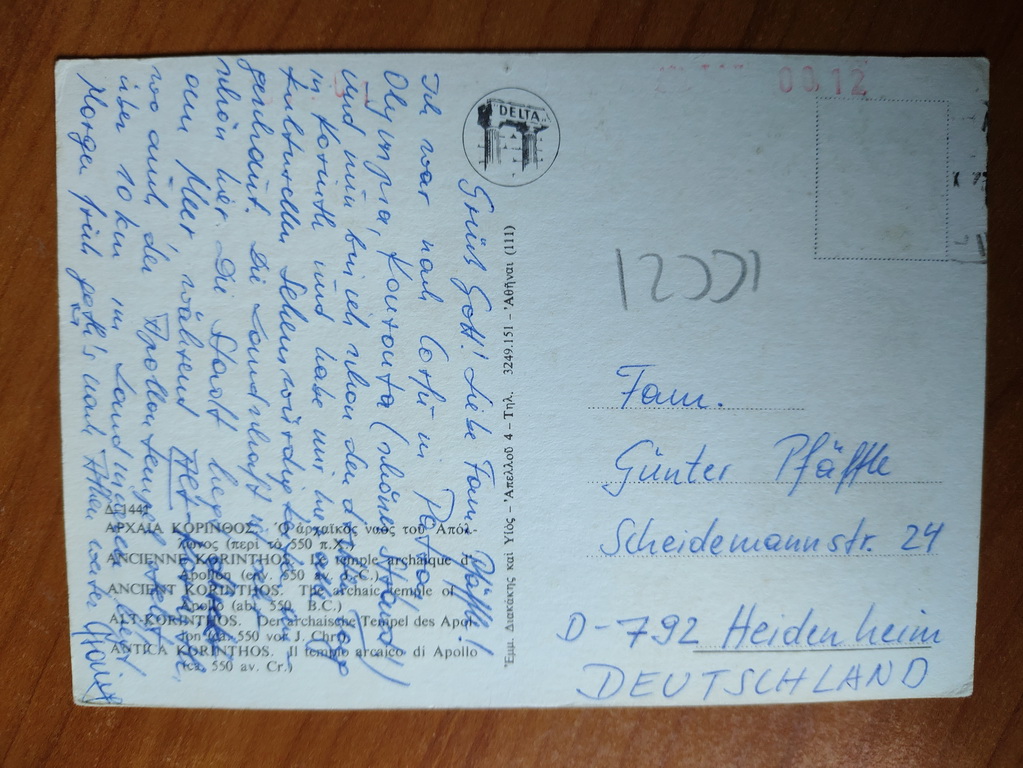 Grüß Gott! Liebe Fam. Pfäffle!
Ich war nach Corfu in Patra,
Olympia, (schöner Strand)
und nun bin ich schon den 6. Tag
in Korinth und habe mir die
kulturellen Sehenswürdigkeiten
Die Landschaft ist
schön hier. Die Stadt liegt
am Meer, während Alt-Korinth,
wo auch der Apollontempel steht,
über 10 km im Landinneren liegt.
Morgen früh geht's nach Athen weiter.
DELTA
Δ-1441
ΑΡΧΑΙΑ ΚΟΡΙΝΘΟΣ. Ὁ ἀρχαϊκὸς ναὸς τοῦ Ἀπόλ-
λωνος (περὶ τὸ 550 π.Χ.)
ANCIENNE KORINTHOS. Le temple archaïque d'
Apollon (env. 550 av. J.C.)
ANCIENT KORINTHOS. The archaic temple of
Apollo (abt. 550 B.C.)
ALT-KORINTHOS. Der archaische Tempel des Apol-
lon (ca. 550 vor J. Chr.)
ANTICA KORINTHOS. Il tempio arcaico di Apollo
(ca. 550 av. Cr.)
Ἐμμ. Διακάκης καὶ Υἱὸς - Ἀπελλοῦ 4 - Τηλ. 3249.151 - Ἀθῆναι (111)
00.12
Fam.
Günter Pfäffle
Scheidemannstr. 24
D-792 Heidenheim
DEUTSCHLAND